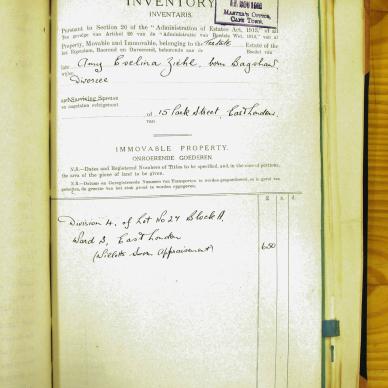 INVENTORY
INVENTARIS.
MASTER'S OFFICE,
CAPE TOWN.
Pursuant to Section 26 of the "Administration of Estates Act, 1913," of all
Ten gevolge van Artikel 26 van de "Administratie van Boedels Wet, 1913," van al
Property, Movable and Immovable, belonging to the Testate Estate of the
het Eigendom, Roerend en Onroerend, behorende aan de Boedel van
late Amy Evelina Ziehl, born Bagshaw
wijlen
Divorcee
and Surviving Spouse
en nagelaten echtgenoot
of 15 Park Street, East London.
van
IMMOVABLE PROPERTY.
ONROERENDE GOEDEREN.
N.B.—Dates and Registered Numbers of Titles to be specified, and, in the case of portions,
the area of the piece of land to be given.
N.B.—Datums en Geregistreerde Nummers van Transporten te worden gespecificeerd, en in geval van
gedeelten, de grootte van het stuk grond te worden opgegeven.
£ s. d.
Division 4, of Lot No 27 Block A
Ward 3, East London
(Sworn Appraisement) 650